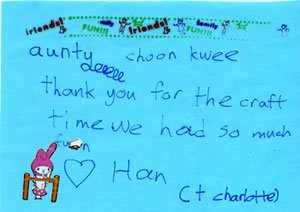 friends! family FUN!!! friends! family FUN!!!
aunty choon kwee
thank you for the craft
time we had so much
fun
♡ Han
(+ charlotte)